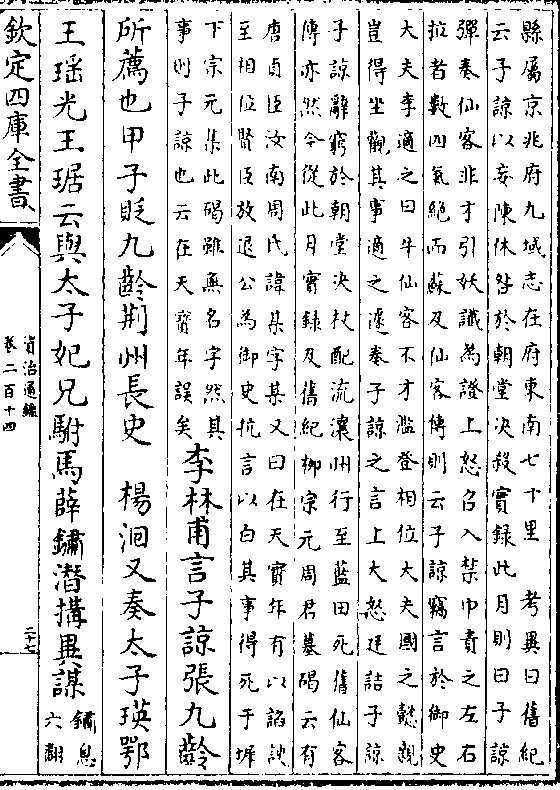 縣屬京兆府九域志在府東南七十里 考異曰舊紀
云子諒以妄陳休咎於朝堂決殺實録此月則曰子諒
彈奏仙客非才引妖讖為證上怒召入禁中責之左右
拉者數四氣絶而蘇及仙客傳則云子諒竊言於御史
大夫李適之曰牛仙客不才濫登相位大夫國之懿親
豈得坐觀其事適之遽奏子諒之言上大怒廷詰子諒
子諒辭窮於朝堂決杖配流瀼州行至藍田死舊仙客
傳亦然今從此月實録及舊紀柳宗元周君墓碣云有
唐貞臣汝南周氏諱某字某又曰在天寶年有以諂諛
至相位賢臣放退公為御史抗言以白其事得死于墀
下宗元集此碣雖無名字然其
事則子諒也云在天寶年誤矣
李林甫言子諒張九齡
所薦也甲子貶九齡荆州長史 楊洄又奏太子瑛鄂
王瑶光王琚云與太子妃兄駙馬薛鏽潛搆異謀
鏽息
六翻
欽定四庫全書
資治通鑑
卷二百十四
二十七